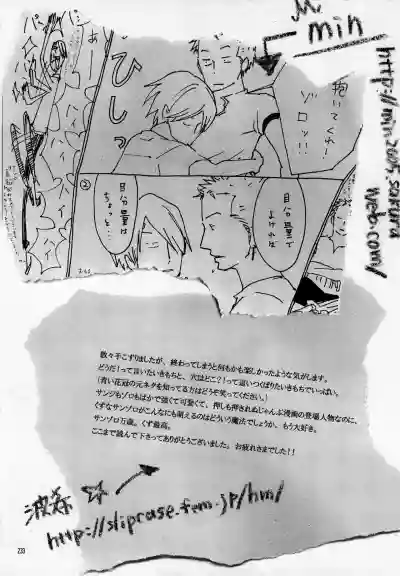 min
http://min2005.sakura
web.com/
抱いてくれ！
ゾロッ!!
ひしっ
②
自分量で
よければ
自分量は
ちょっと…
数々手こずりましたが、終わってしまうと何もかも楽しかったような気がします。
どうだ！って言いたいきもちと、穴はどこ？！って這いつくばりたいきもちでいっぱい。
(青い花冠の元ネタを知ってる方はどうぞ笑ってください。)
サンジもゾロもばかで強くて可愛くて、押しも押されぬじゃんぷ漫画の登場人物なのに、
くずなサンゾロがこんなにも萌えるのはどういう魔法でしょうか、もう大好き。
サンゾロ万歳。くず最高。
ここまで読んで下さってありがとうございました。お疲れさまでした!!
http://sliprase.fem.jp/hm/